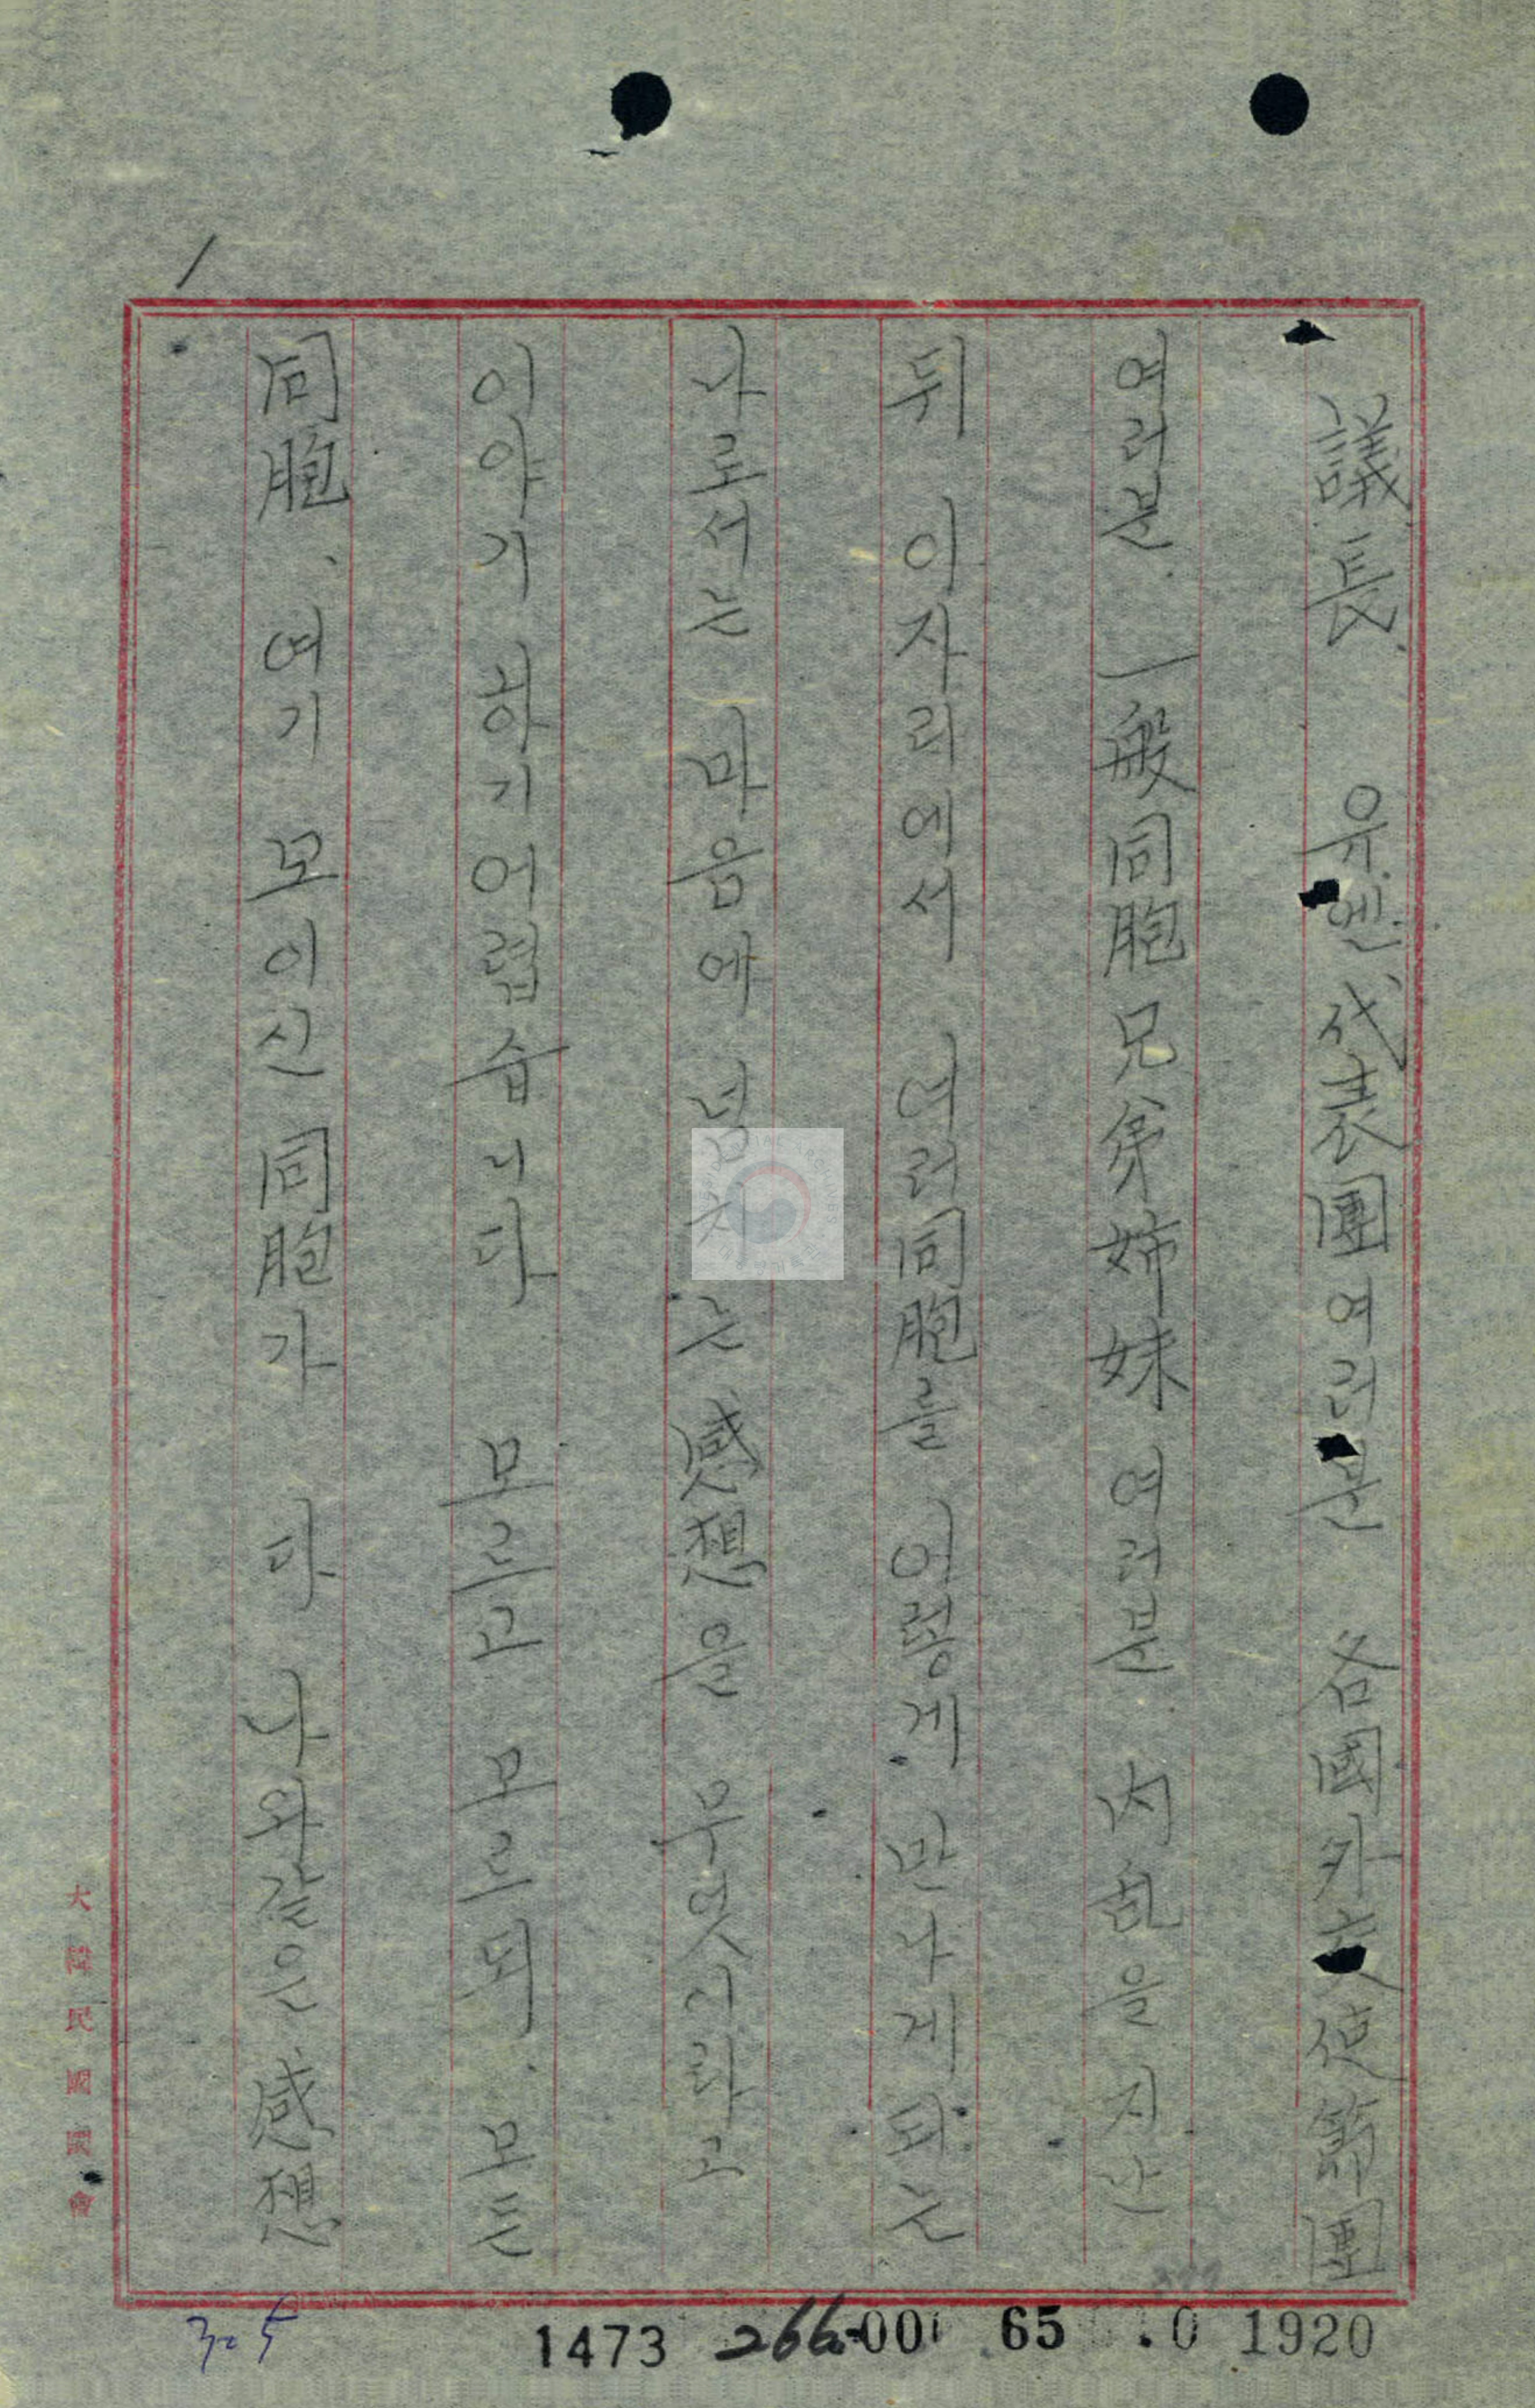 1
議長. 유엔代表團여러분 各國外交使節團
여러분. 一般同胞兄弟姉妹 여러분. 內乱을 지난
뒤 이자리에서 여러同胞를 이렇게 만나게 되는
나로서는 마음에 넘치는 感想을 무엇이라고
이야기 하기 어렵습니다 모르고 모르되. 모든
同胞、여기 모이신 同胞가 다 나와같은 感想
大韓民國國會
1473 266-00 65 .0 1920